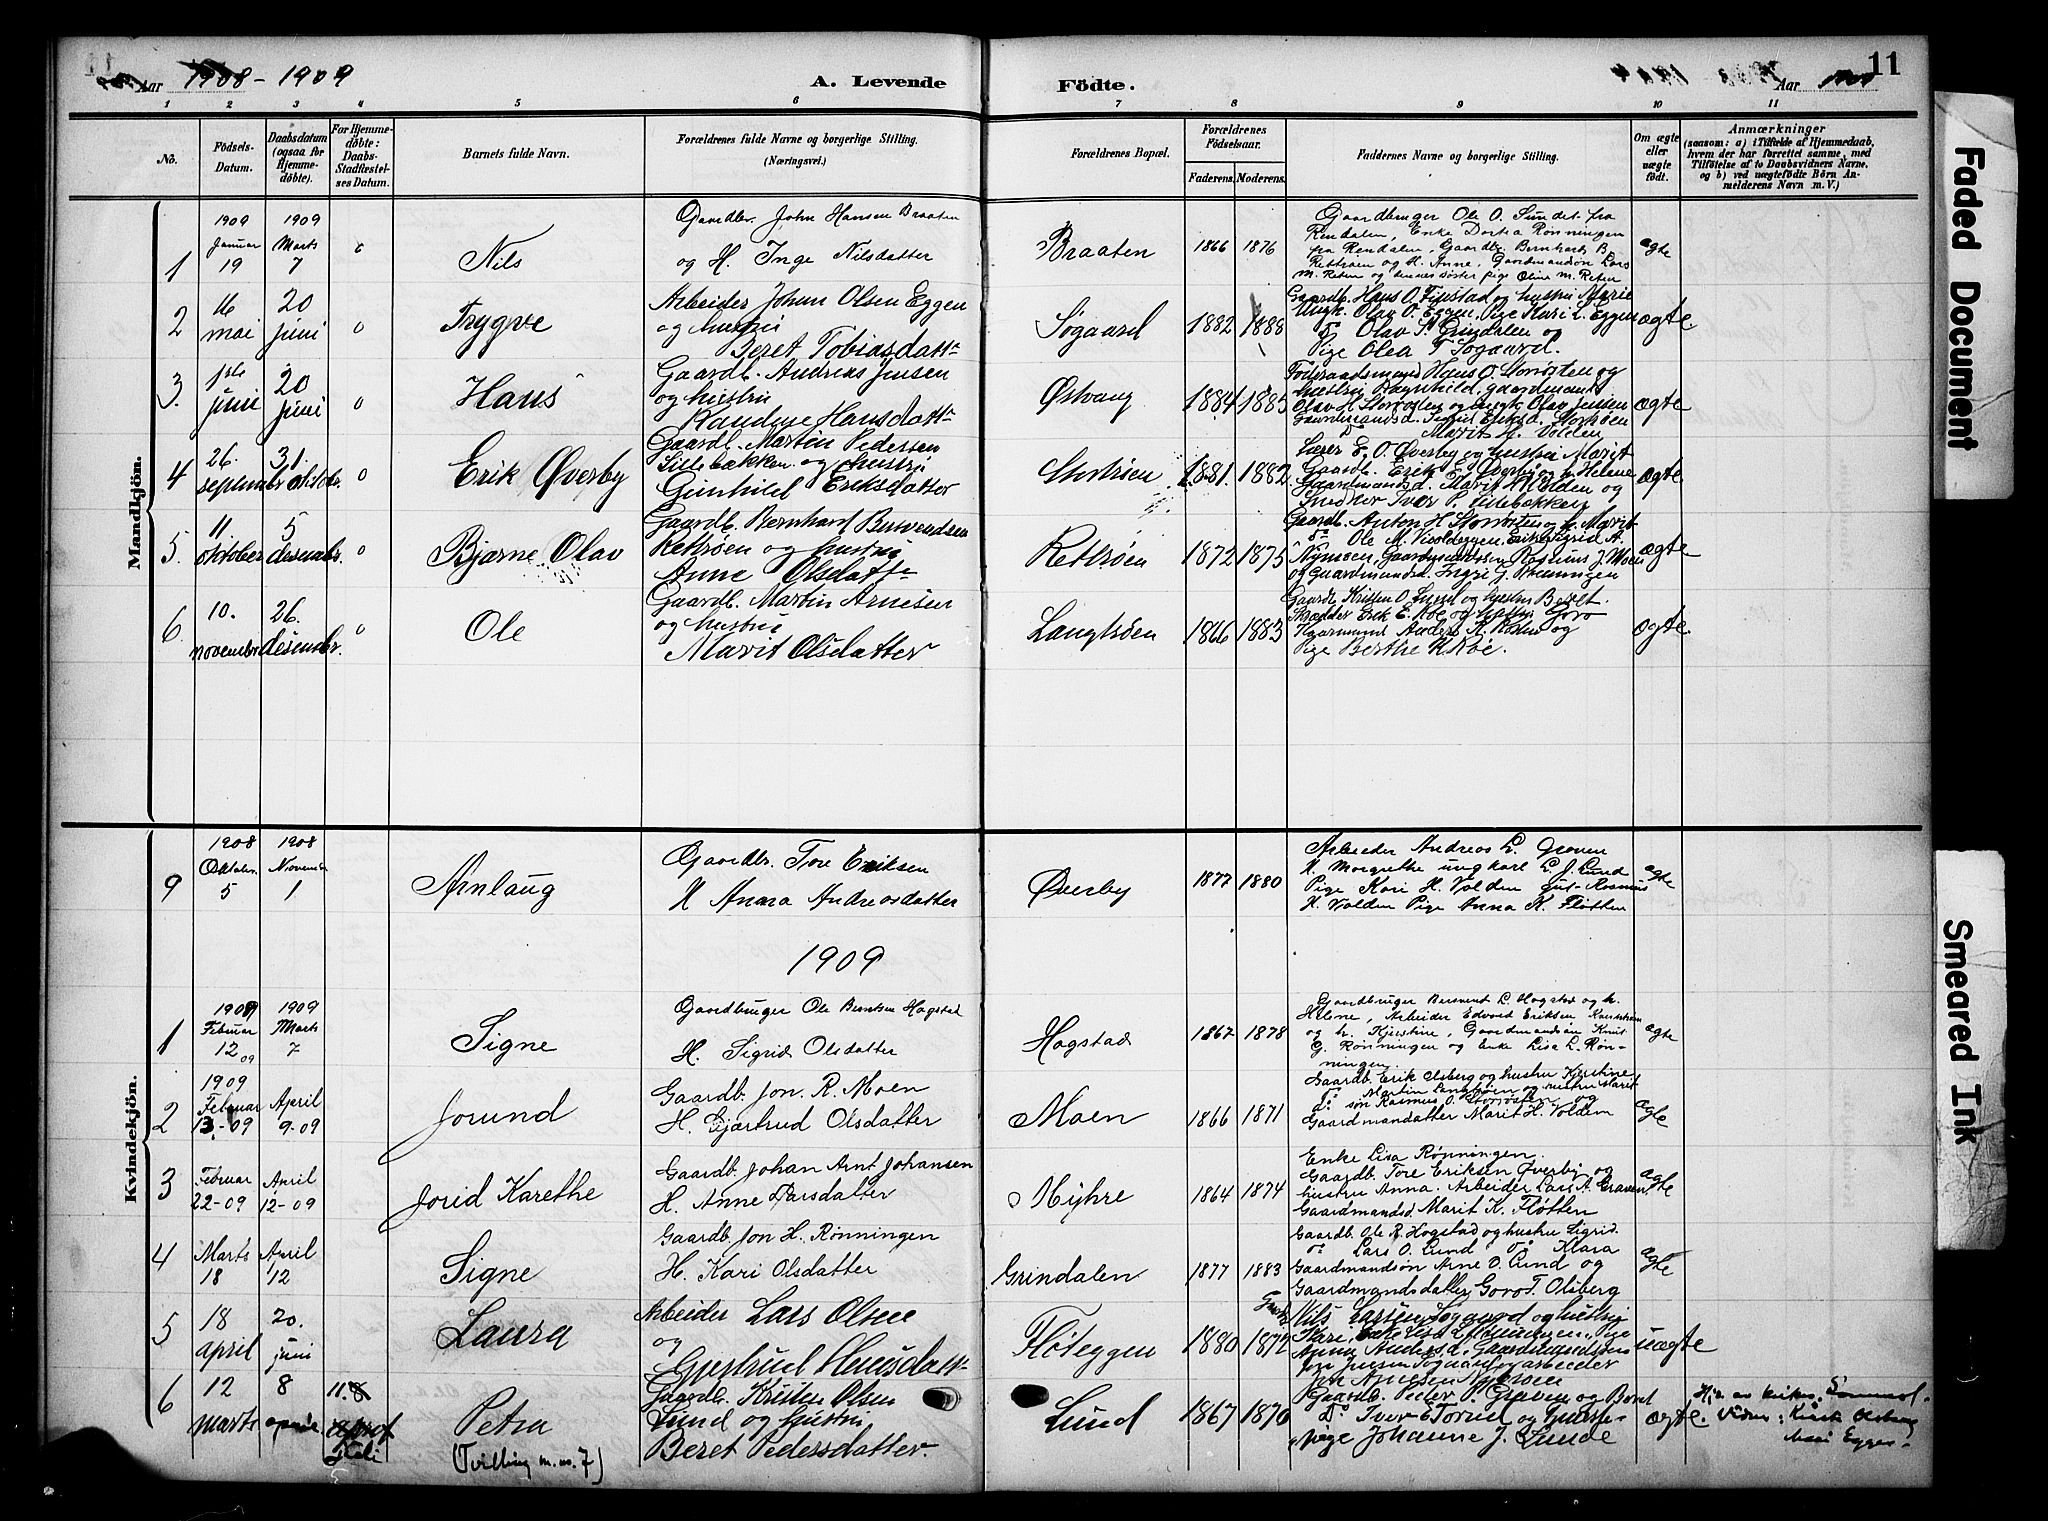 Aar 1908 - 1909
A. Levende
Födte.
Aar
11
1 2 3 4 5 6 7 8 9 10 11
No.
Födsels-
Datum.
Daabsdatum
(ogsaa for
Hjemme-
döbte).
For Hjemme-
döbte:
Daabs-
Stadfæstel-
ses Datum.
Barnets fulde Navn.
Forældrenes fulde Navne og borgerlige Stilling.
(Næringsvei.)
Forældrenes Bopæl.
Forældrenes
Födselsaar.
Faderens. Moderens.
Faddernes Navne og borgerlige Stilling.
Om ægte
eller
uægte
födt.
Anmærkninger
(saasom: a) i Tilfælde af Hjemmedaab,
hvem der har forrettet samme, med
Tilföielse af to Daabsvidners Navne,
og b) ved uægtefödte Börn An-
melderens Navn m. V.)
Mandkjön.
1
1909 Januar 19
1909 Marts 7
Nils
Gaardbr. John Hansen Braaten
og H. Inge Nilsdatter
Braaten
1866 1876
Gaardbruger Ole O. Sundet fra
Rendalen, Enke Dortea Rønningen
fra Rendalen, Gaardbr. Bernhard B.
Rettroen og H. Anne, Gaardmandsøn Lars
M. Reten og dennes søster pige Oline M. Reten
ægte
2
16 mai
20 juni
0
Trygve
Arbeider Johan Olsen Eggen
og hustru
Beret Tobiasdatt.
Søgaard
1882 1888
Gaardb. Hans O. Finstad og hustru Marie
Ungk. Olav O. Eggen, Pige Kari L. Eggen
Do Olav S. Grindalen og
Pige Olea T Søgaard.
ægte
3.
1ste juni
20 juni
0
Hans
Gaardb. Andreas Jensen
og hustru
Randine Hansdatt.
Østvang
1884 1885
Føderaadsmand Hans O. Storrøsten og
hustru Ragnhild, gaardmands.
Olav H. Storrøsten og ungk. Olav Jensen
Marit H. Volden
ægte
4
26. september
31. oktobr.
0
Erik Øverby
Gaardb. Martin Pedersen
Lillebækken og hustru
Gunhild Eriksdatter
Stortrøen
1881. 1882
Lærer E. O. Øverby og hustru Marit
Gaardb. Erik E. Øverby og h. Helene
Gaardmandsd. Marit H. Volden og
Snedker Iver P. Lillebækken
ægte
5.
11 oktober
5 desembr.
0
Bjarne Olav
Gaardb. Bernhard Bersvendsen
Rettrøen og hustru
Anne Olsdatt.
Rettrøen
1872 1875
Gaardb. Anton H Storrøsten og h. Marit
Do Ole M. Voldeggen, Enke Sigrid A.
Nymoen, Gaardmandssøn Rasmus J. Moen
og Gaardmandsd. Ingri J. Rønningen
ægte
6.
10. novembr
26. desembr.
0
Ole
Gaardb. Martin Arnesen
og hustru
Marit Olsdatter
Langtrøen
1866 1883
Gaardb Kristen O. Lund og hustru Beret.
Skrædder Erik E. Roe og hustru Goro
Anders K. Roe og
Pige Berthe K. Roe.
ægte.
Kvindekjön.
9
1908 Oktober 5
1908 November 1
Arnlaug
Gaardbr. Tore Eriksen
H Anna Andreasdatter
Øverby
1877 1880
Arbeider Andreas L. Graven
H. Margrethe ungkarl L. J. Lund
Pige Kari H. Volden gut Rasmus
H. Volden Pige Anna K. Fløtten
ægte
1909
1
1909 Februar 12 09
1909 Marts 7
Signe
Gaardbruger Ole Berntsen Hogstad
H. Sigrid Olsdatter
Hogstad
1867 1878
Gaardbruger Bersvend L. Hogstad og h.
Helene, Arbeider Edvard Eriksen
og h. Kjerstine, Gaardmandsøn Knut
G. Rønningen og enke Lisa L. Røn-
ningen.
ægte
2
1909 Februar 13-09
April 9-09
Jorund
Gaardb. Jon R. Moen
H. Gjærtrud Olsdatter
Moen
1866 1871
Gaardb. Erik Olsberg og hustru Kjerstine
Do Martin Langtrøen og hustru Marit
Do søn Rasmus O. Storrøsten og
Gaardmandatter Marit H. Volden
ægte
3
Februar 22-09
April 12-09
Jorid Karethe
Gaardb. Johan Arnt Johansen
H. Anne Larsdatter
Myhre
1864 1874
Enke Lisa Rønningen.
Gaardb. Tore Eriksen Øverby og
hustru Anna. Arbeider Lars A. Graven.
Gaardmandsd. Marit K. Fløtten
ægte
4
Marts 18
April 12
Signe
Gaardb. Jon H. Rønningen
H. Kari Olsdatter
Grindalen
1877 1883
Gaardb. Ole B. Hogstad og hustru Sigrid.
Do Lars O. Lund Do Klara
Gaardmandsøn Arne O. Lund og
Gaardmandsdatter Goro T. Olsberg
ægte
5
18 april
20. juni
Laura
Arbeider Lars Olsen
og
Gjertrud Hansdatt.
Fløteggen
1880 1872
Gaardb. Nils Larsen Søgaard og hustru
Kari, Enke Lisa L. Rønningen, Pige
Anne Andersd. Gaardmandssøn
Jon Jensen Søgaard og arbeider
Jon Arnesen Nymoen
uægte
6
12 marts
8 april
11.8
Petra
(Tvilling m. no. 7)
Gaardb. Kristen Olsen
Lund og hustru
Beret Pedersdatter.
Lund
1867 1870
Gaardb. Peder P. Graven og Berit
Do Iver E Torrud og
Pige Johanne J. Lunde
ægte.
Hj. av kirkes.
Vidner: Erik Olsberg
Mari Eggen
Faded Document
Smeared Ink